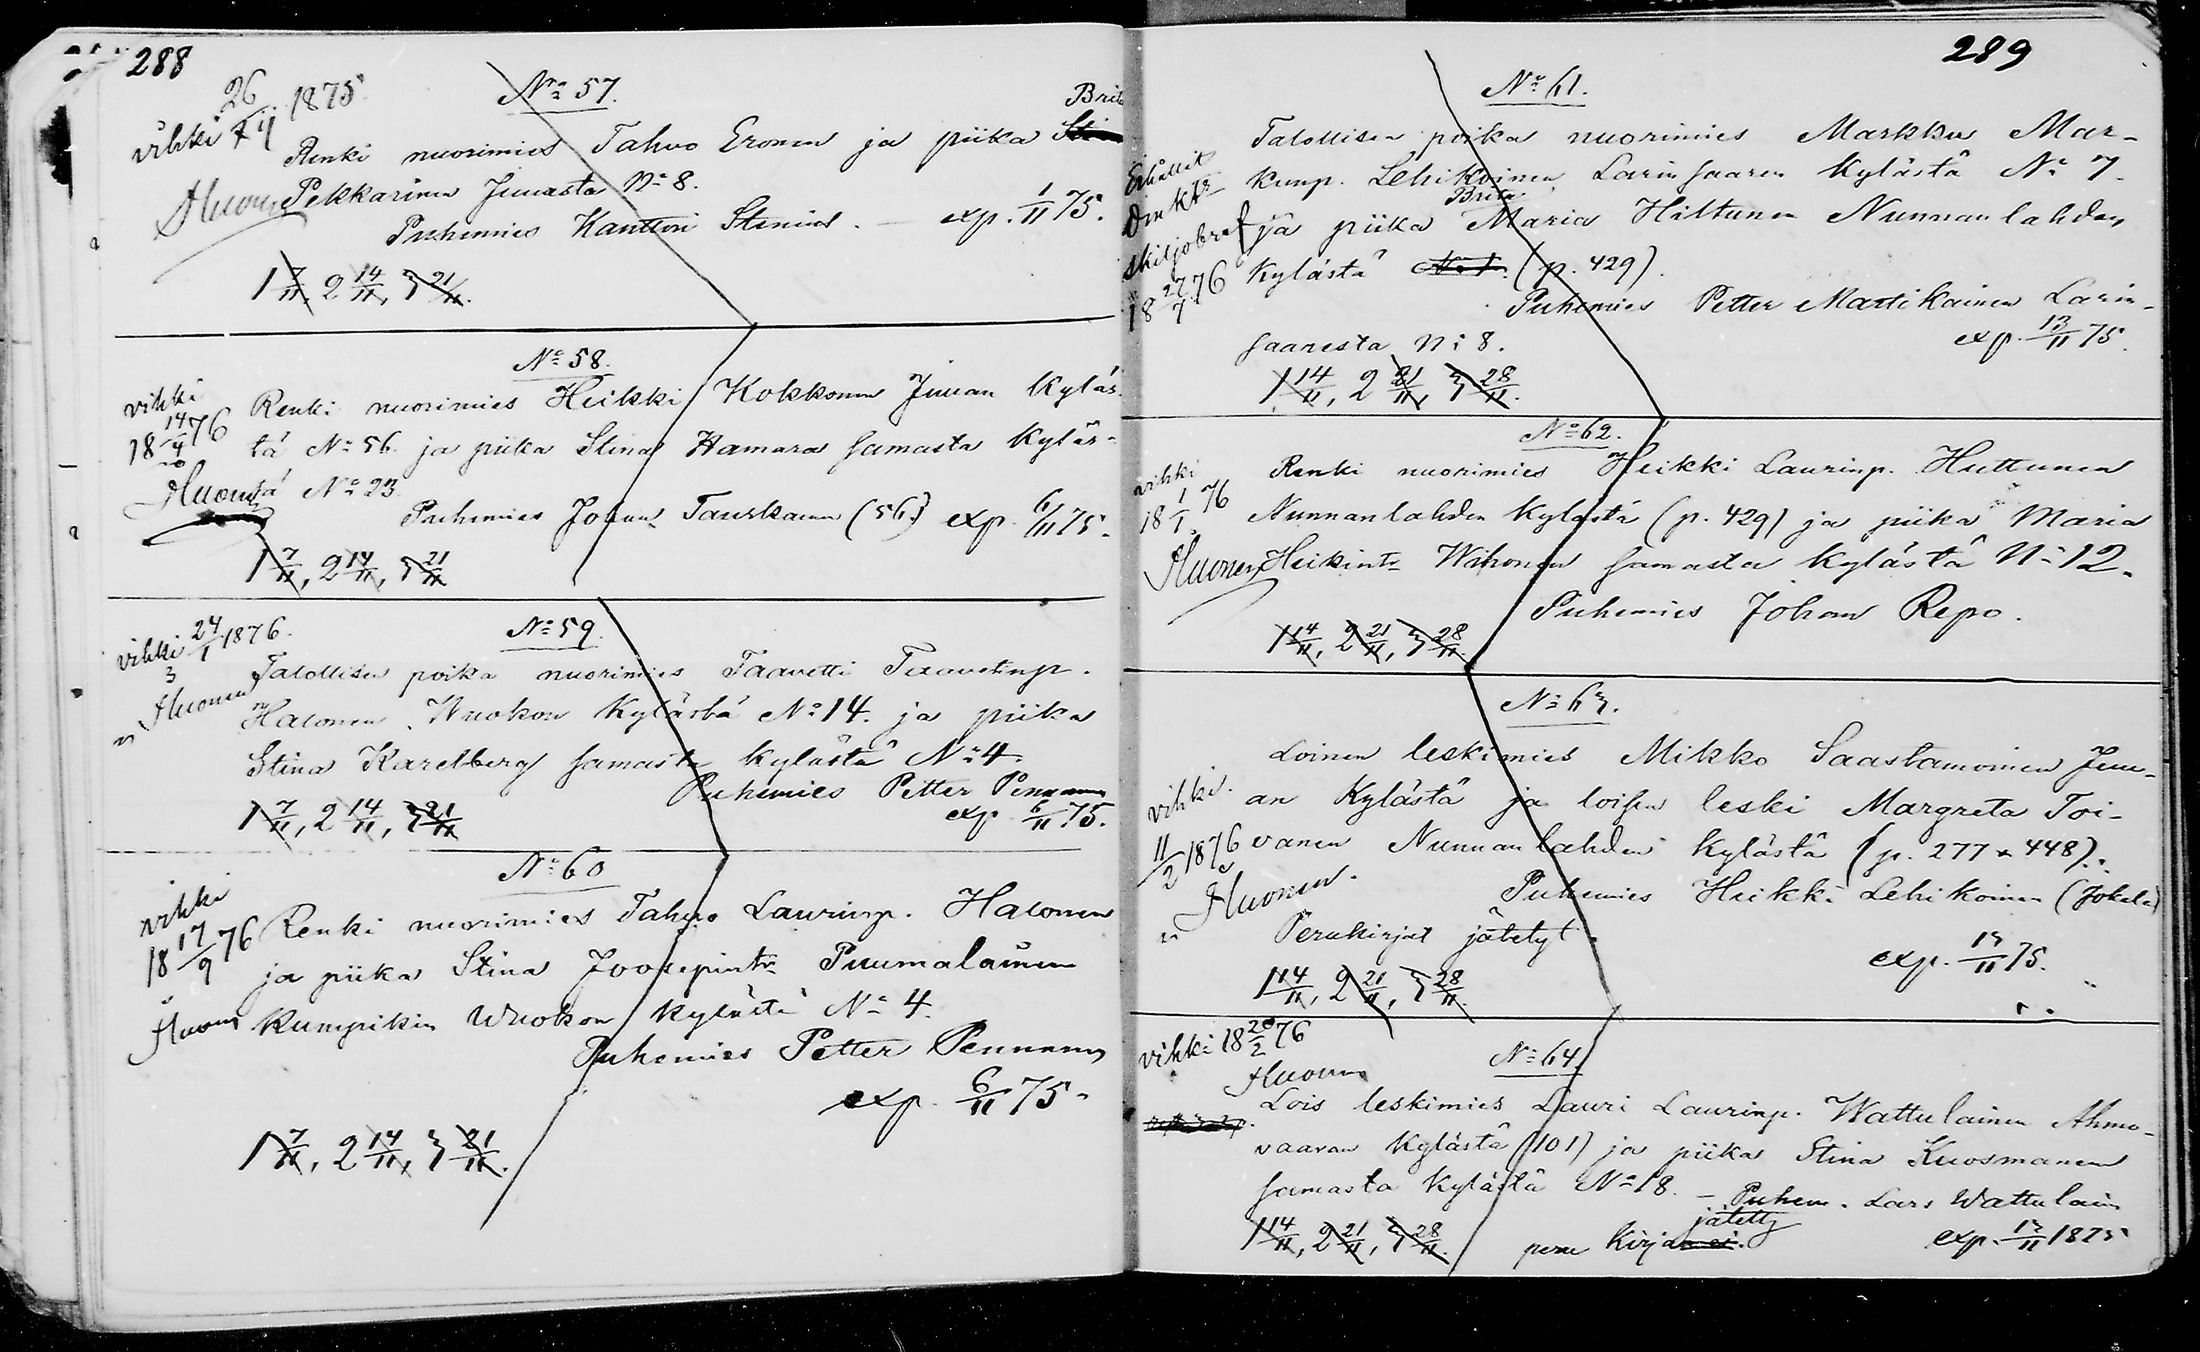 288
26/11 1875
vihki
Nº 57.
Brita
Renki nuorimies Tahvo Eronen ja piika Stina
Pekkarinen Juuasta Nº 8.
Puhemies Kanttori Stenius. — exp. 1/11 75.
1 7/11, 2 14/11, 3 21/11.
Nº 58.
vihki
18 14/4 76
Renki nuorimies Heikki Kokkonen Juuan kyläs-
tä Nº 56. ja piika Stina Hamara samasta kyläs-
tä Nº 23.
Puhemies Johan Tauskanen (56.) exp. 6/11 75.
1 7/11, 2 14/11, 3 21/11
vihki 24/1 1876.
Nº 59.
Talollisen poika nuorimies Taavetti Taavetinp.
Halonen Wuokon kylästä Nº 14. ja piika
Stina Karelberg samasta kylästä Nº 4.
Puhemies Petter Pennanen
1 7/11, 2 14/11, 3 21/11
exp. 6/11 75.
Nº 60
vihki
18 17/9 76
Renki nuorimies Tahvo Laurinp. Halonen
ja piika Stina Joosepintr Puumalainen
kumpikin Wuokon kylästä Nº 4.
Puhemies Petter Pennanen
exp. 6/11 75.
1 7/11, 2 14/11, 3 21/11.
289
Nº 61.
Talollisen poika nuorimies Markku Mar-
kunp. Lehikoinen Larinsaaren kylästä Nº 7.
Brita
ja piika Maria Hiltunen Nunnanlahden
kylästä Nº 1. (p. 429).
18 27/7 76
Puhemies Petter Martikainen Larin-
saaresta Nº 8.
exp. 13/11 75.
1 14/11, 2 21/11, 3 28/11.
Nº 62.
vihki
18 1/1 76
Renki nuorimies Heikki Laurinp. Huttunen
Nunnanlahden kylästä (p. 429) ja piika Maria
Heikintr Wihonen samasta kylästä Nº 12.
Puhemies Johan Repo.
1 14/11, 2 21/11, 3 28/11.
Nº 63.
Loinen leskimies Mikko Saastamoinen Juu-
an kylästä ja loisen leski Margreta Toi-
vanen Nunnanlahden kylästä (p. 277 & 448).
vihki.
11/2 1876
Puhemies Heikki Lehikoinen (Jokela)
Perukirjat jätetyt.
exp. 13/11 75.
1 14/11, 2 21/11, 3 28/11.
vihki 18 20/2 76
Nº 64.
Lois leskimies Lauri Laurinp. Wattulainen Ahmo-
vaaran kylästä (101) ja piika Stina Kuosmanen
samasta kylästä Nº 18. — Puhem. Lars Wattulain
jätetty
1 14/11, 2 21/11, 3 28/11.
peru kirja
exp. 13/11 1875